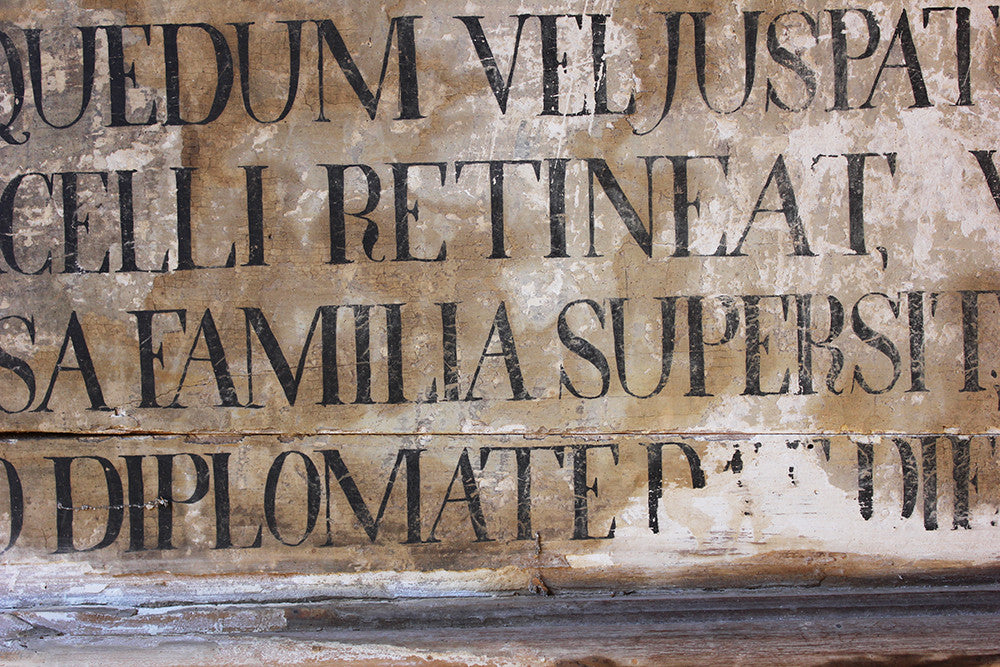 QUEDUM VEL JUSPAT
CELLI RETINEAT,
SA FAMILIA SUPERSIT
DIPLOMATE